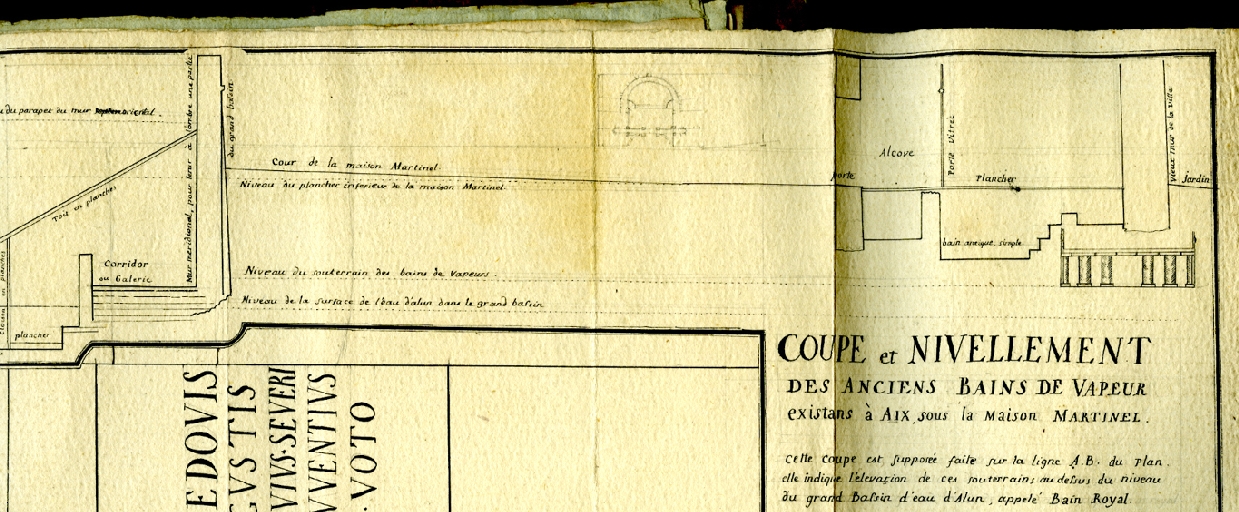 du parapet du mur
Toit en planches
Mur méridional, pour tenir à l'ombre une partie
du grand bassin.
Cour de la maison Martinel.
Niveau du plancher inferieur de la maison Martinel.
Corridor
ou Galerie
plancher
Niveau du souterrain des bains de Vapeurs.
Niveau de la surface de l'eau d'alun dans le grand bassin
porte
Alcove
Porte Vitrée
Plancher
bain antique simple
Vieux mur de la Ville
Jardin
EDOVIS
GVSTIS
VIVS·SEVERI
VVENTIVS
.VOTO
COUPE et NIVELLEMENT
DES ANCIENS BAINS DE VAPEUR
existans à AIX sous la Maison MARTINEL.
Cette Coupe est supposée faite sur la ligne A.B. du Plan.
elle indique l'elevation de ces souterrains au dessus du niveau
du grand Bassin d'eau d'Alun, appelé Bain Royal